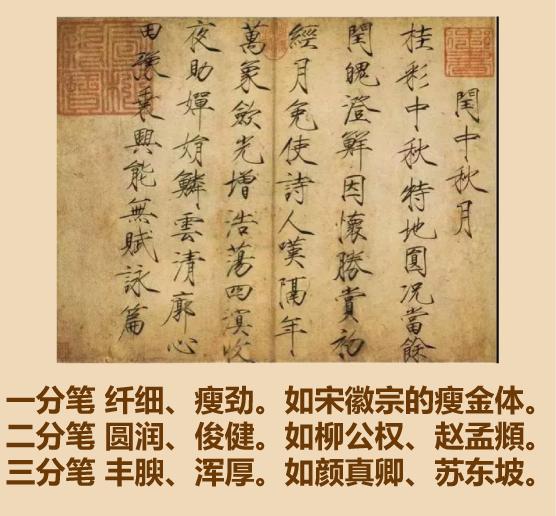 閏中秋月
桂彩中秋特地圓况當餘
閏魄澄鮮因懷勝賞初
經月免使詩人嘆隔年
萬象斂光增浩蕩四溟收
夜助嬋娟鱗雲清廓心
田豁乘興能無賦詠篇
一分笔 纤细、瘦劲。如宋徽宗的瘦金体。
二分笔 圆润、俊健。如柳公权、赵孟頫。
三分笔 丰腴、浑厚。如颜真卿、苏东坡。